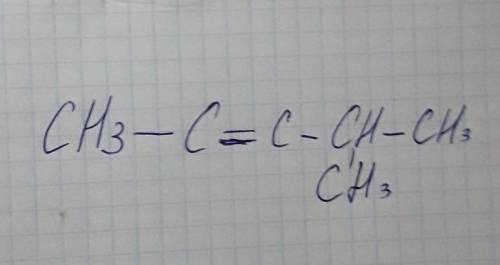 CH3 — C = C - CH - CH3
CH3